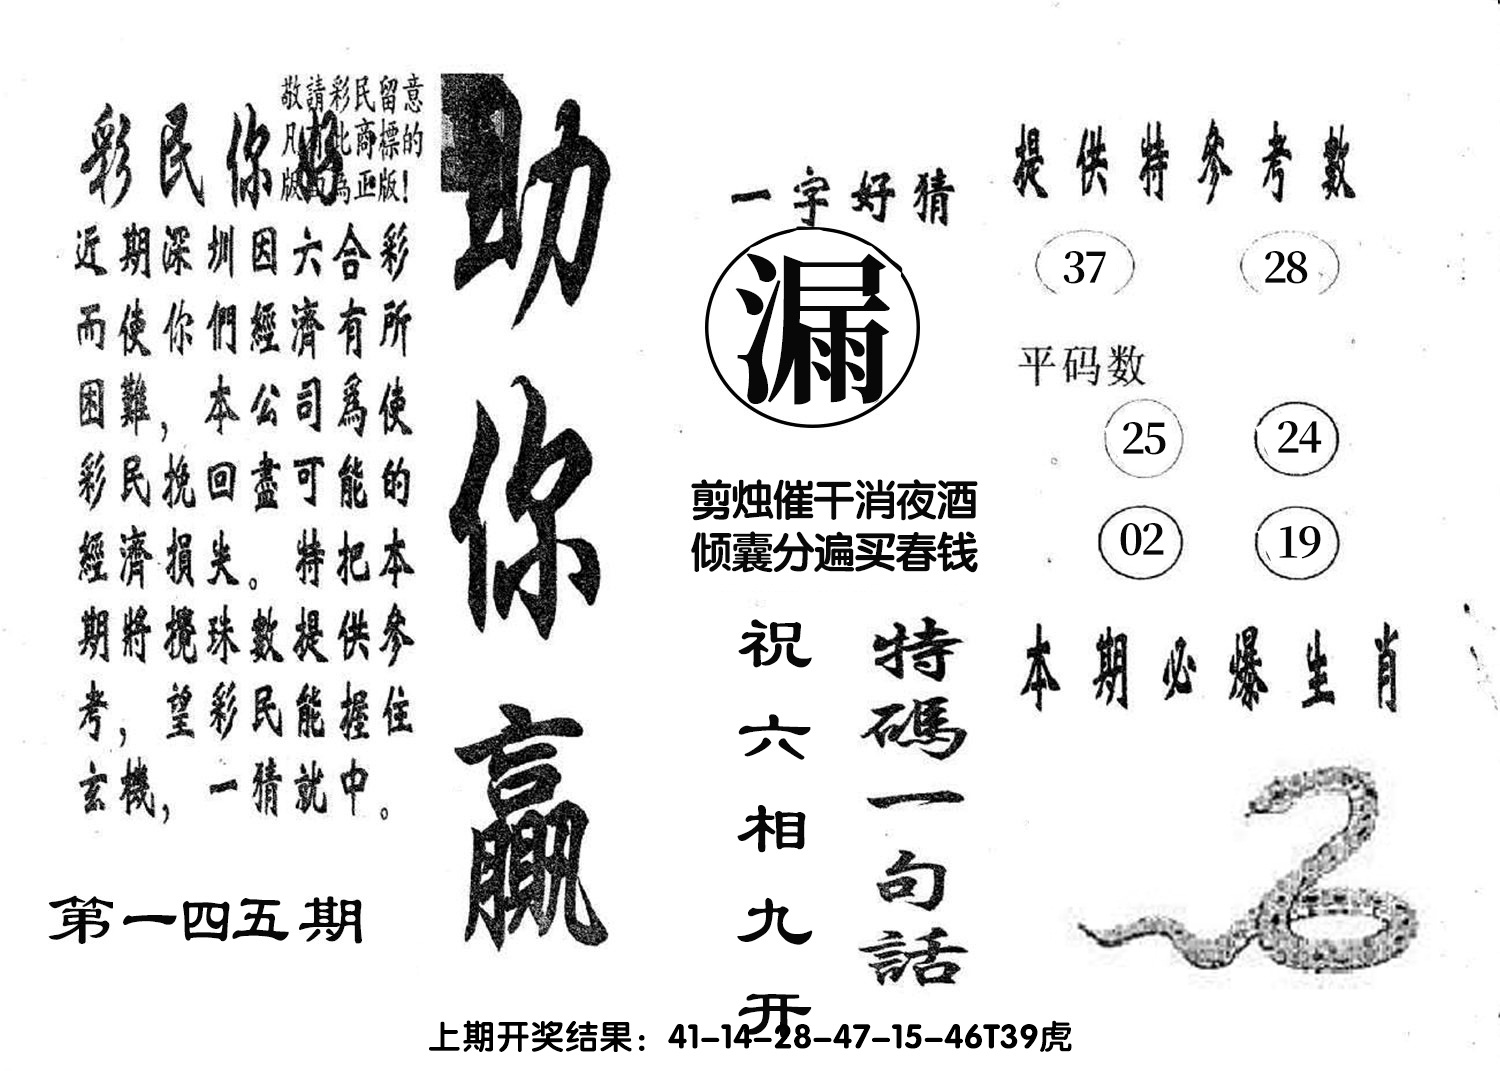 敬請彩民留意
凡有此商標的
版面為正版!
彩民你好
近期深圳因六合彩
而使你們經濟有所
困難，本公司爲使
彩民挽回盡可能的
經濟損失。特把本
期將攪珠數提供參
考，望彩民能握住
玄機，一猜就中。
第一四五期
助你贏
一字好猜
漏
剪烛催干消夜酒
倾囊分遍买春钱
特碼一句話
祝六相九开
提供特參考數
37 28
平码数
25 24
02 19
本期必爆生肖
上期开奖结果：41-14-28-47-15-46T39虎